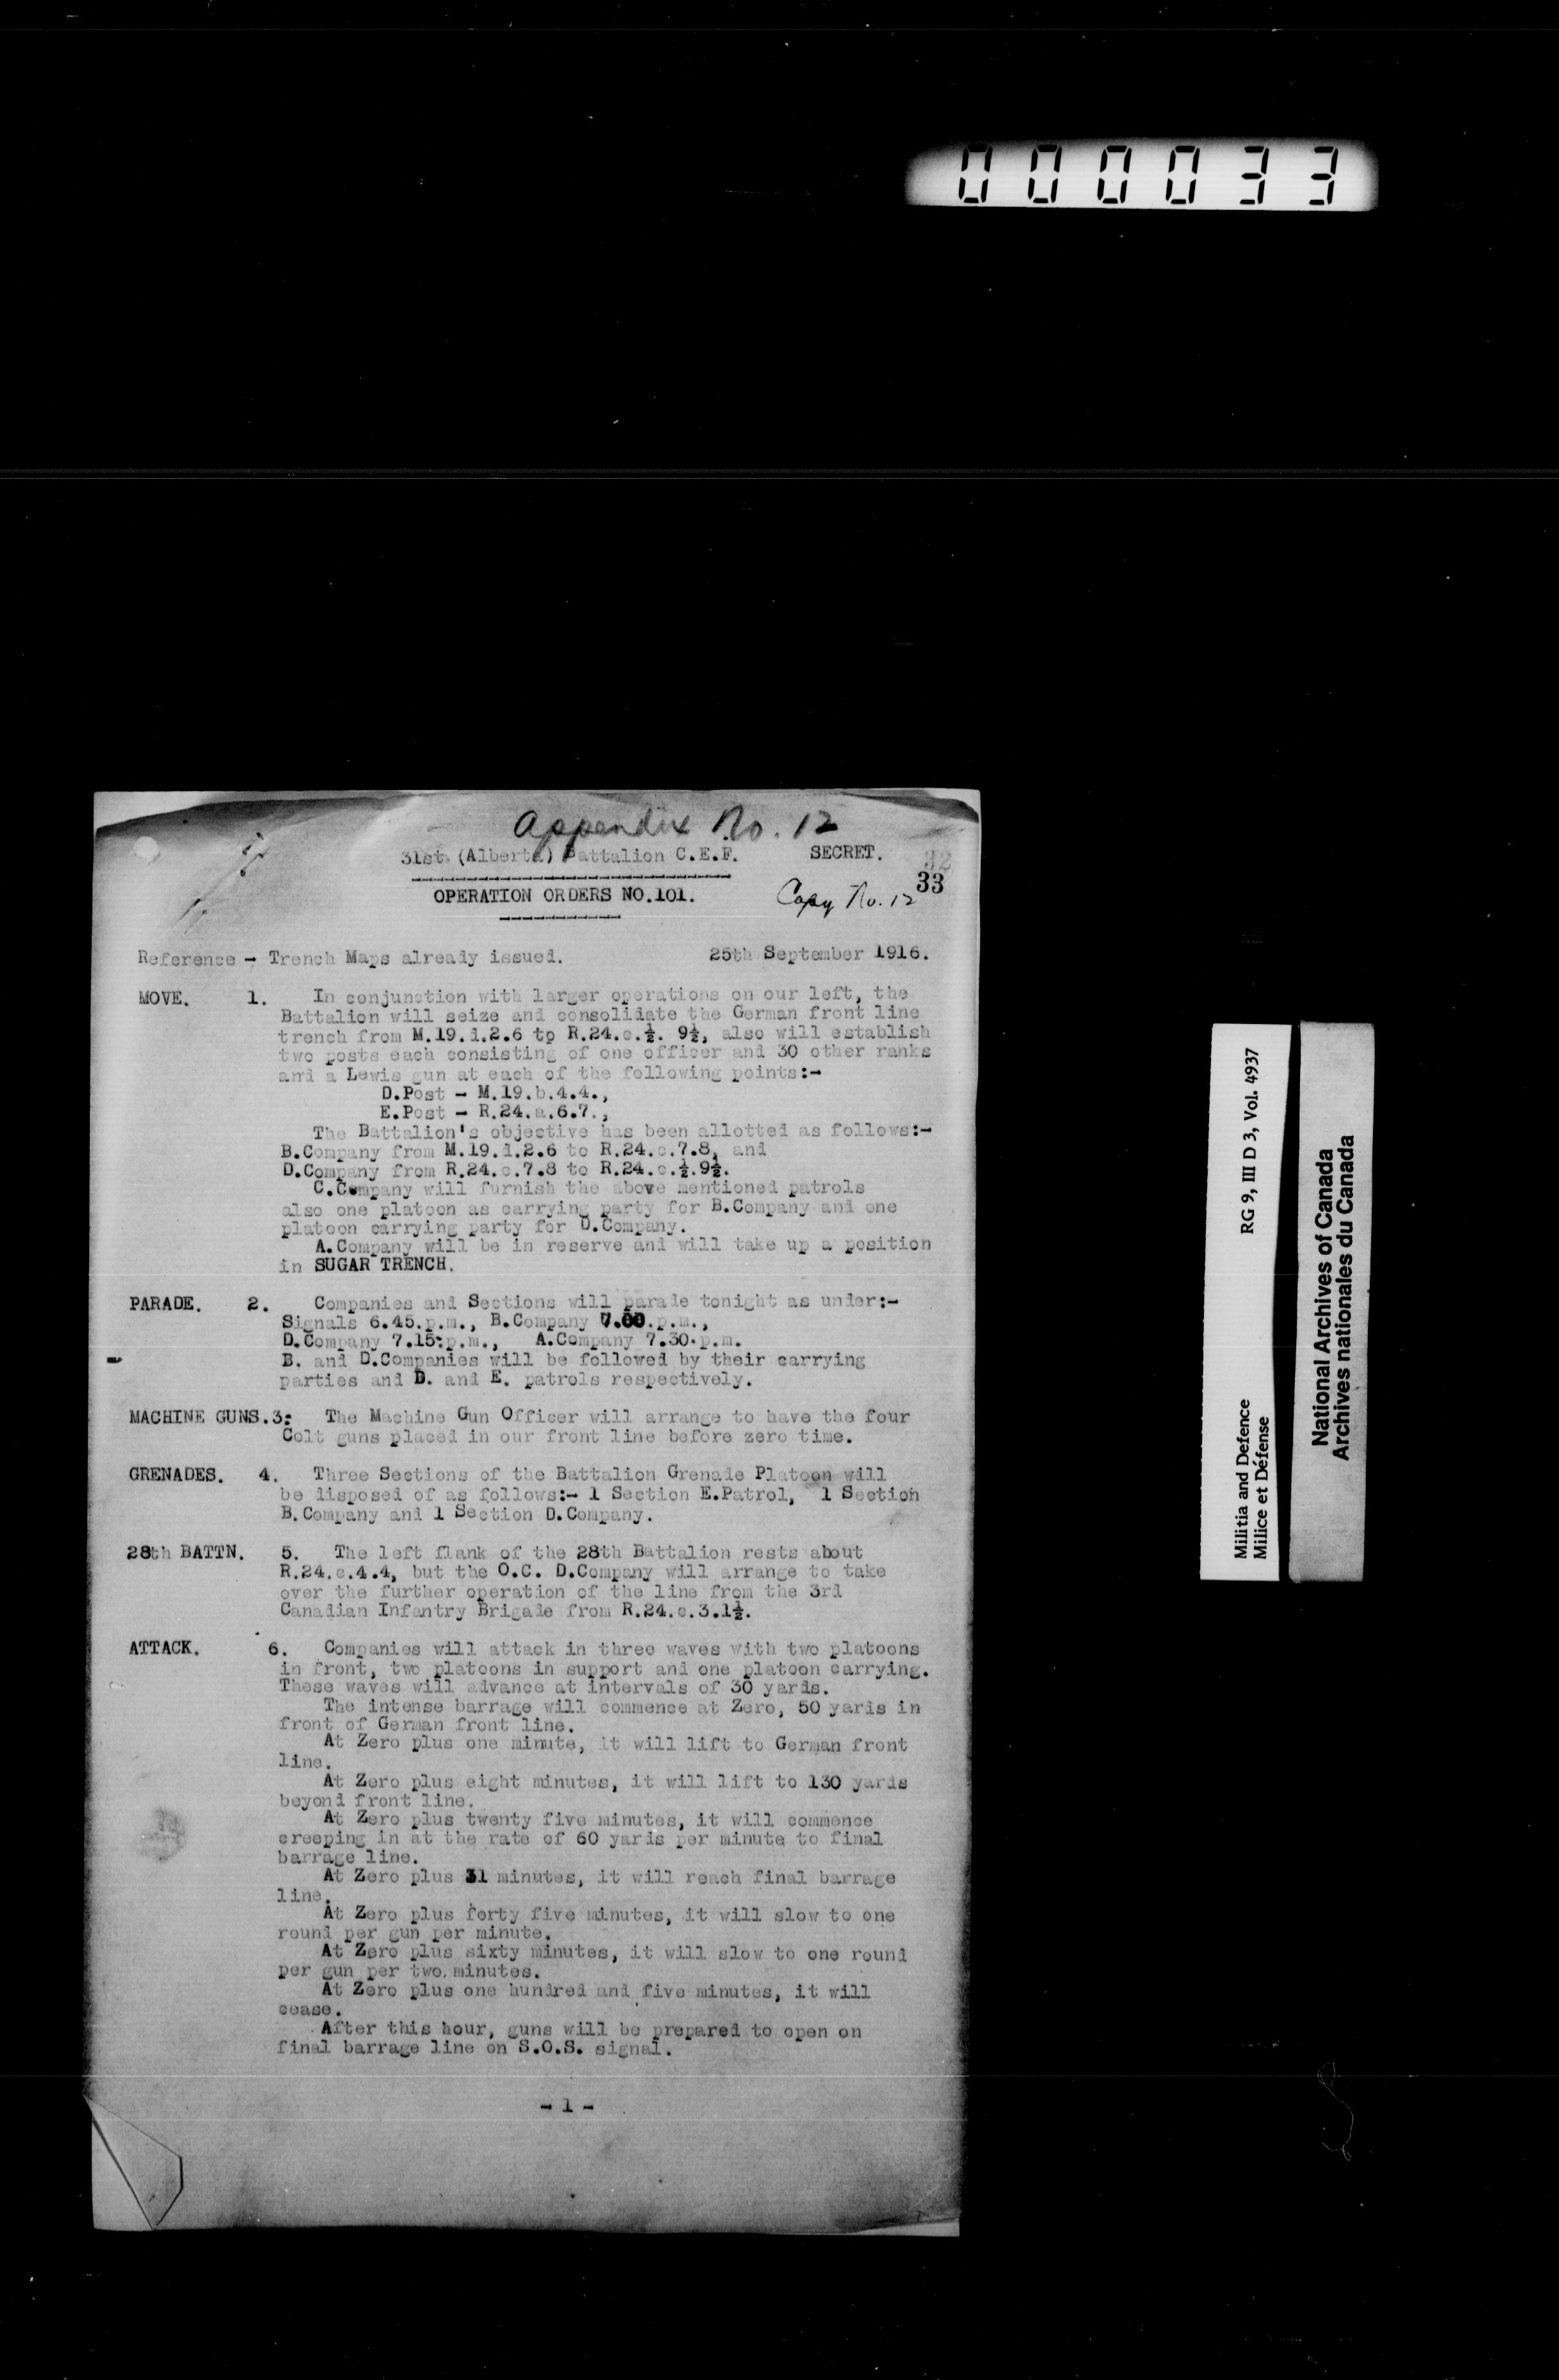 000033
Appendix No. 12
31st. (Alberta) Battalion C.E.F. SECRET.
32
33
OPERATION ORDERS NO.101.
Copy No. 12
Reference - Trench Maps already issued. 25th September 1916.
MOVE. 1. In conjunction with larger operations on our left, the
Battalion will seize and consolidate the German front line
trench from M.19.d.2.6 to R.24.c.½. 9½, also will establish
two posts each consisting of one officer and 30 other ranks
and a Lewis gun at each of the following points:-
D.Post - M.19.b.4.4.,
E.Post - R.24.a.6.7.,
The Battalion's objective has been allotted as follows:-
B.Company from M.19.d.2.6 to R.24.c.7.8, and
D.Company from R.24.c.7.8 to R.24.c.½.9½.
C.Company will furnish the above mentioned patrols
also one platoon as carrying party for B.Company and one
platoon carrying party for D.Company.
A.Company will be in reserve and will take up a position
in SUGAR TRENCH.
PARADE. 2. Companies and Sections will parade tonight as under:-
Signals 6.45.p.m., B.Company 7.00.p.m.,
D.Company 7.15.p.m., A.Company 7.30.p.m.
B. and D.Companies will be followed by their carrying
parties and D. and E. patrols respectively.
MACHINE GUNS.3: The Machine Gun Officer will arrange to have the four
Colt guns placed in our front line before zero time.
GRENADES. 4. Three Sections of the Battalion Grenade Platoon will
be disposed of as follows:- 1 Section E.Patrol, 1 Section
B.Company and 1 Section D.Company.
28th BATTN. 5. The left flank of the 28th Battalion rests about
R.24.c.4.4, but the O.C. D.Company will arrange to take
over the further operation of the line from the 3rd
Canadian Infantry Brigade from R.24.c.3.1½.
ATTACK. 6. Companies will attack in three waves with two platoons
in front, two platoons in support and one platoon carrying.
These waves will advance at intervals of 30 yards.
The intense barrage will commence at Zero, 50 yards in
front of German front line.
At Zero plus one minute, it will lift to German front
line.
At Zero plus eight minutes, it will lift to 130 yards
beyond front line.
At Zero plus twenty five minutes, it will commence
creeping in at the rate of 60 yards per minute to final
barrage line.
At Zero plus 31 minutes, it will reach final barrage
line.
At Zero plus forty five minutes, it will slow to one
round per gun per minute.
At Zero plus sixty minutes, it will slow to one round
per gun per two minutes.
At Zero plus one hundred and five minutes, it will
cease.
After this hour, guns will be prepared to open on
final barrage line on S.O.S. signal.
- 1 -
Militia and Defence RG 9, III D 3, Vol. 4937
Milice et Défense
National Archives of Canada
Archives nationales du Canada